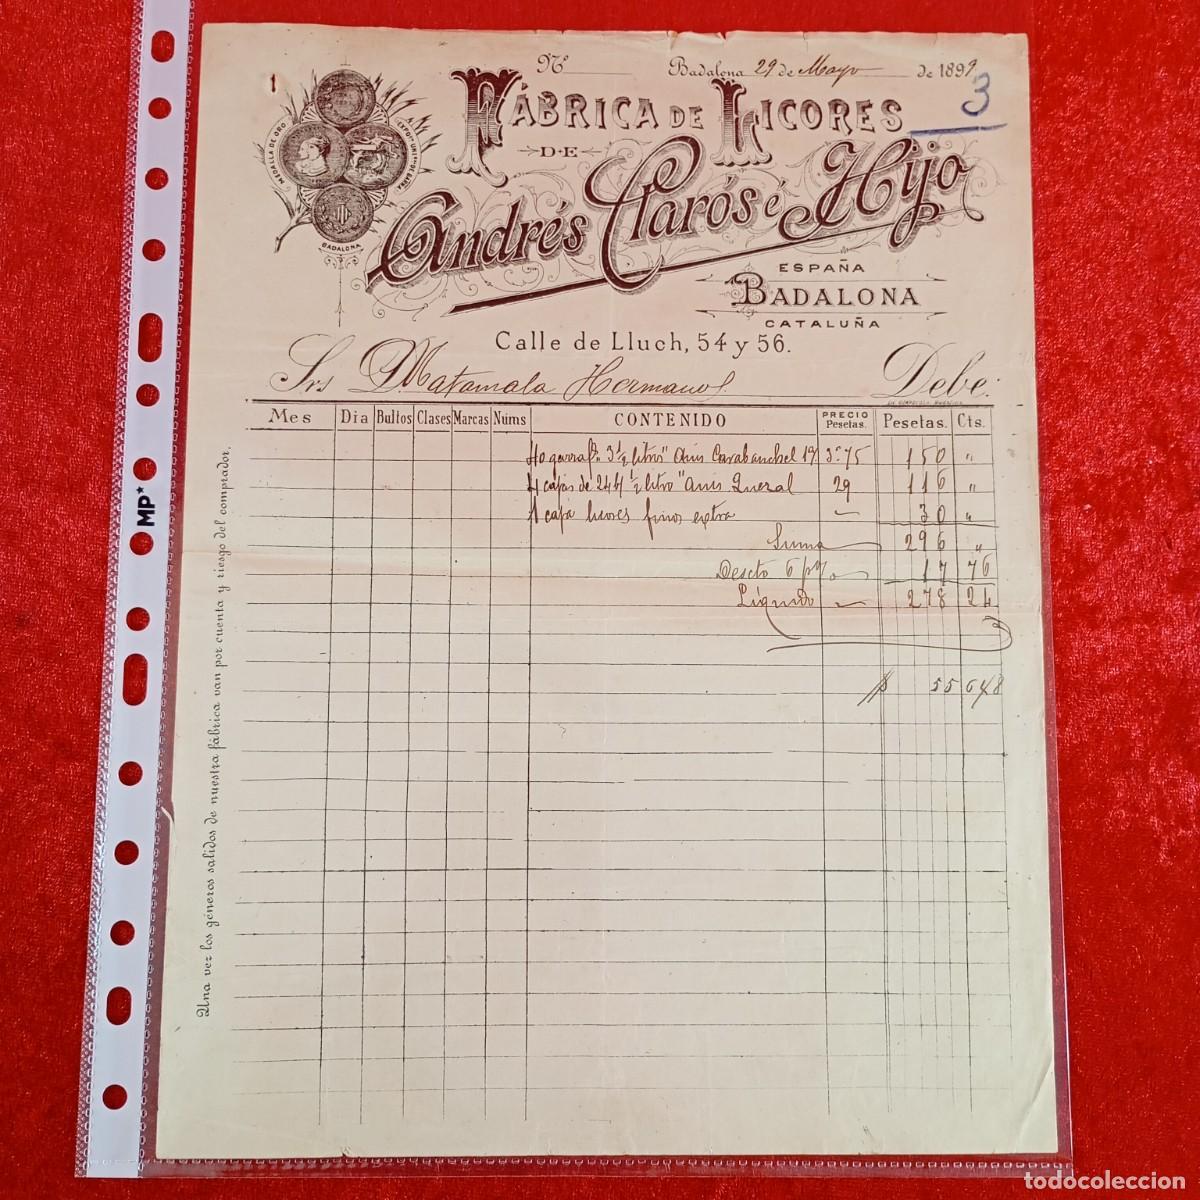 Nº Badalona 29 de Mayo de 1899
3
FÁBRICA DE LICORES
DE
Andrés Clarós é Hijo
MEDALLA DE ORO
BADALONA
ESPAÑA
BADALONA
CATALUÑA
Calle de Lluch, 54 y 56.
Srs Matamala Hermanos Debe:
Mes Dia Bultos Clases Marcas Núms CONTENIDO PRECIO Pesetas. Pesetas. Cts.
40 garraf 3 ½ litros " Anis Carabanchel 17 3'75 150 "
4 cajas de 24 ½ litro " Anis Queral 29 116 "
1 caja licores finos extra 30 "
Suma 296 "
Descto 6 p% 17 76
Líquido 278 24
55 648
Una vez los géneros salidos de nuestra fábrica van por cuenta y riesgo del comprador.
MP
todocoleccion